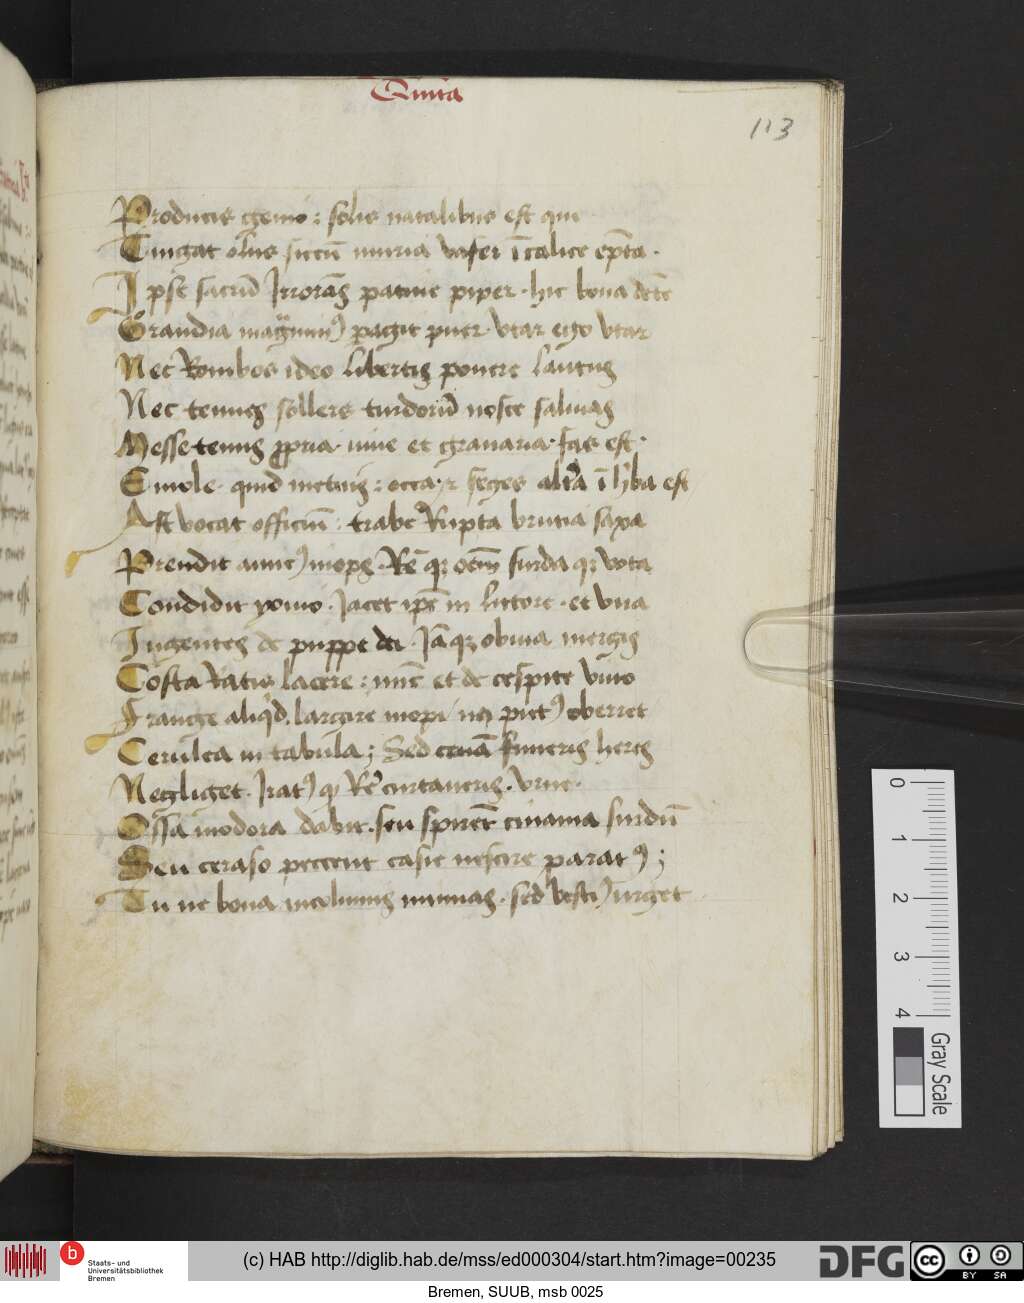 Quīta
113
Producis genio : solis natalibus est qui
Tingat olus siccū muria vafer ī calice ēpta .
Ipse sacrū Irrorās patine piper . hic bona dētē
Grandia magnanimꝰ pagit puer . vtar ego vtar
Nec Rombos ideo libertis ponere lautus
Nec tenues sollers turdorū nosce saliuas
Messe tenus ꝓpria viue et granaria . fas est .
Emole . quid metuis : occa ⁊ seges altᵃ ī hᵉba est
Ast vocat officiū : trabe Rupta brutia saxa
Prendit amicꝰ inops . Rē qꝫ oēm surda qꝫ vota
Condidit yonio . Jacet ip̄e in littore . et vna
Ingentes de puppe dei . Jāqꝫ obuia mergis
Costa Ratis lacere : nūc et de cespite viuo
Frange aliqⁱd . largire inopi / ne pictꝰ oberret
Cerulea in tabula ; Sed cenā funeris heres
Negliget . Iratꝰ qͩ Rē curtaueris . vrne .
Ossa inodora dabit . seu spirēt cinama surdū
Seu ceraso peccent casie nescire paratꝰ ;
Tu ne bona incolumis minuas . sed bestiꝰ urget
0
1
2
3
4
Gray Scale
b
Staats- und
Universitätsbibliothek
Bremen
(c) HAB http://diglib.hab.de/mss/ed000304/start.htm?image=00235
DFG
cc
BY SA
Bremen, SUUB, msb 0025